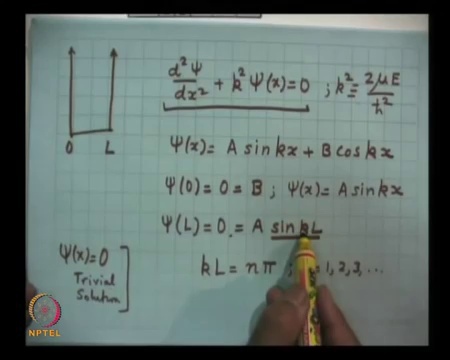 d²Ψ/dx² + k² Ψ(x) = 0 ; k² = 2μE/ħ²
0 L
Ψ(x) = A sin kx + B cos kx
Ψ(0) = 0 = B ; Ψ(x) = A sin kx
Ψ(L) = 0 . = A sin kL
Ψ(x) = 0
Trivial
Solution
kL = nπ ; = 1, 2, 3, ...
NPTEL